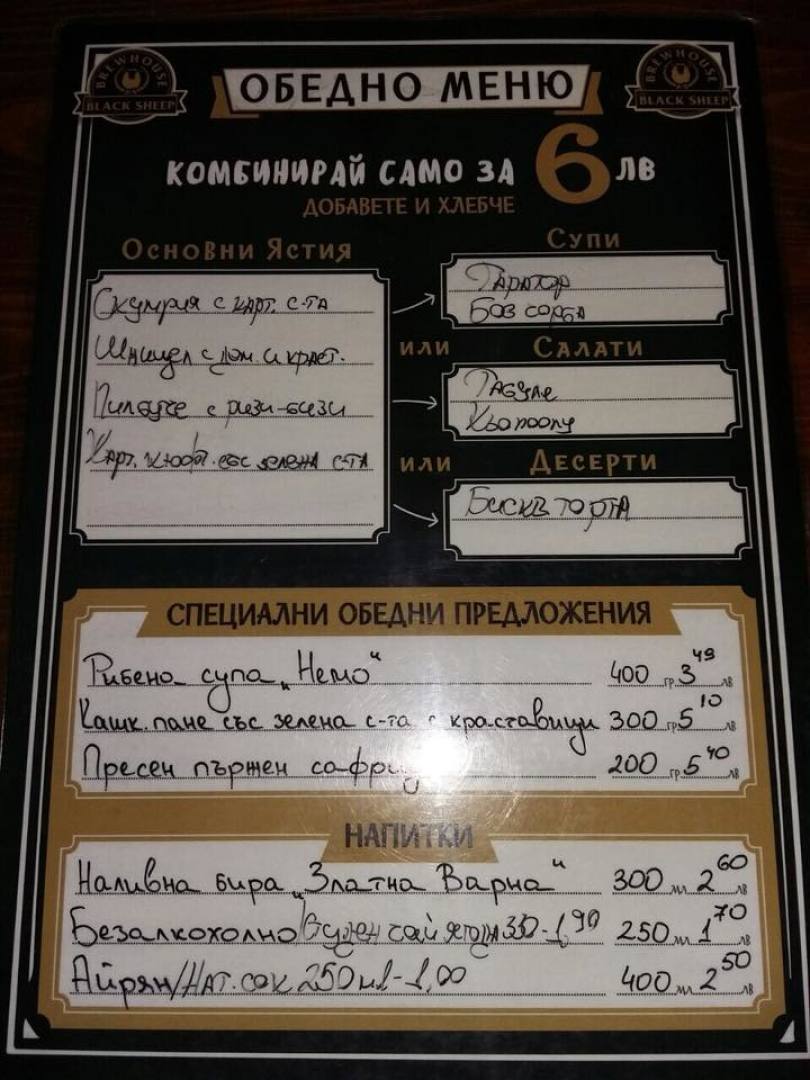 BREWHOUSE
BLACK SHEEP
ОБЕДНО МЕНЮ
BREWHOUSE
BLACK SHEEP
КОМБИНИРАЙ САМО ЗА 6 ЛВ
ДОБАВЕТЕ И ХЛЕБЧЕ
Основни Ястия
Скумрия с карт. с-та
Шницел с дом. и краст.
Пилешко с ризи-бизи
Карт. кюфт. със зелена с-та
Супи
Таратор
Боб чорба
или Салати
Табуле
Кьопоолу
или Десерти
Бискв торта
СПЕЦИАЛНИ ОБЕДНИ ПРЕДЛОЖЕНИЯ
Рибена супа „Немо“ 400 гр. 3 49 лв
Кашк. пане със зелена с-та с краставици 300 гр. 5 10 лв
Пресен пържен сафрид 200 гр. 5 40 лв
НАПИТКИ
Наливна бира „Златна Варна“ 300 мл 2 60 лв
Безалкохолно/Студен чай ягода 330-1,90 250 мл 1 70 лв
Айрян/Нат. сок 250 мл-1,00 400 мл 2 50 лв